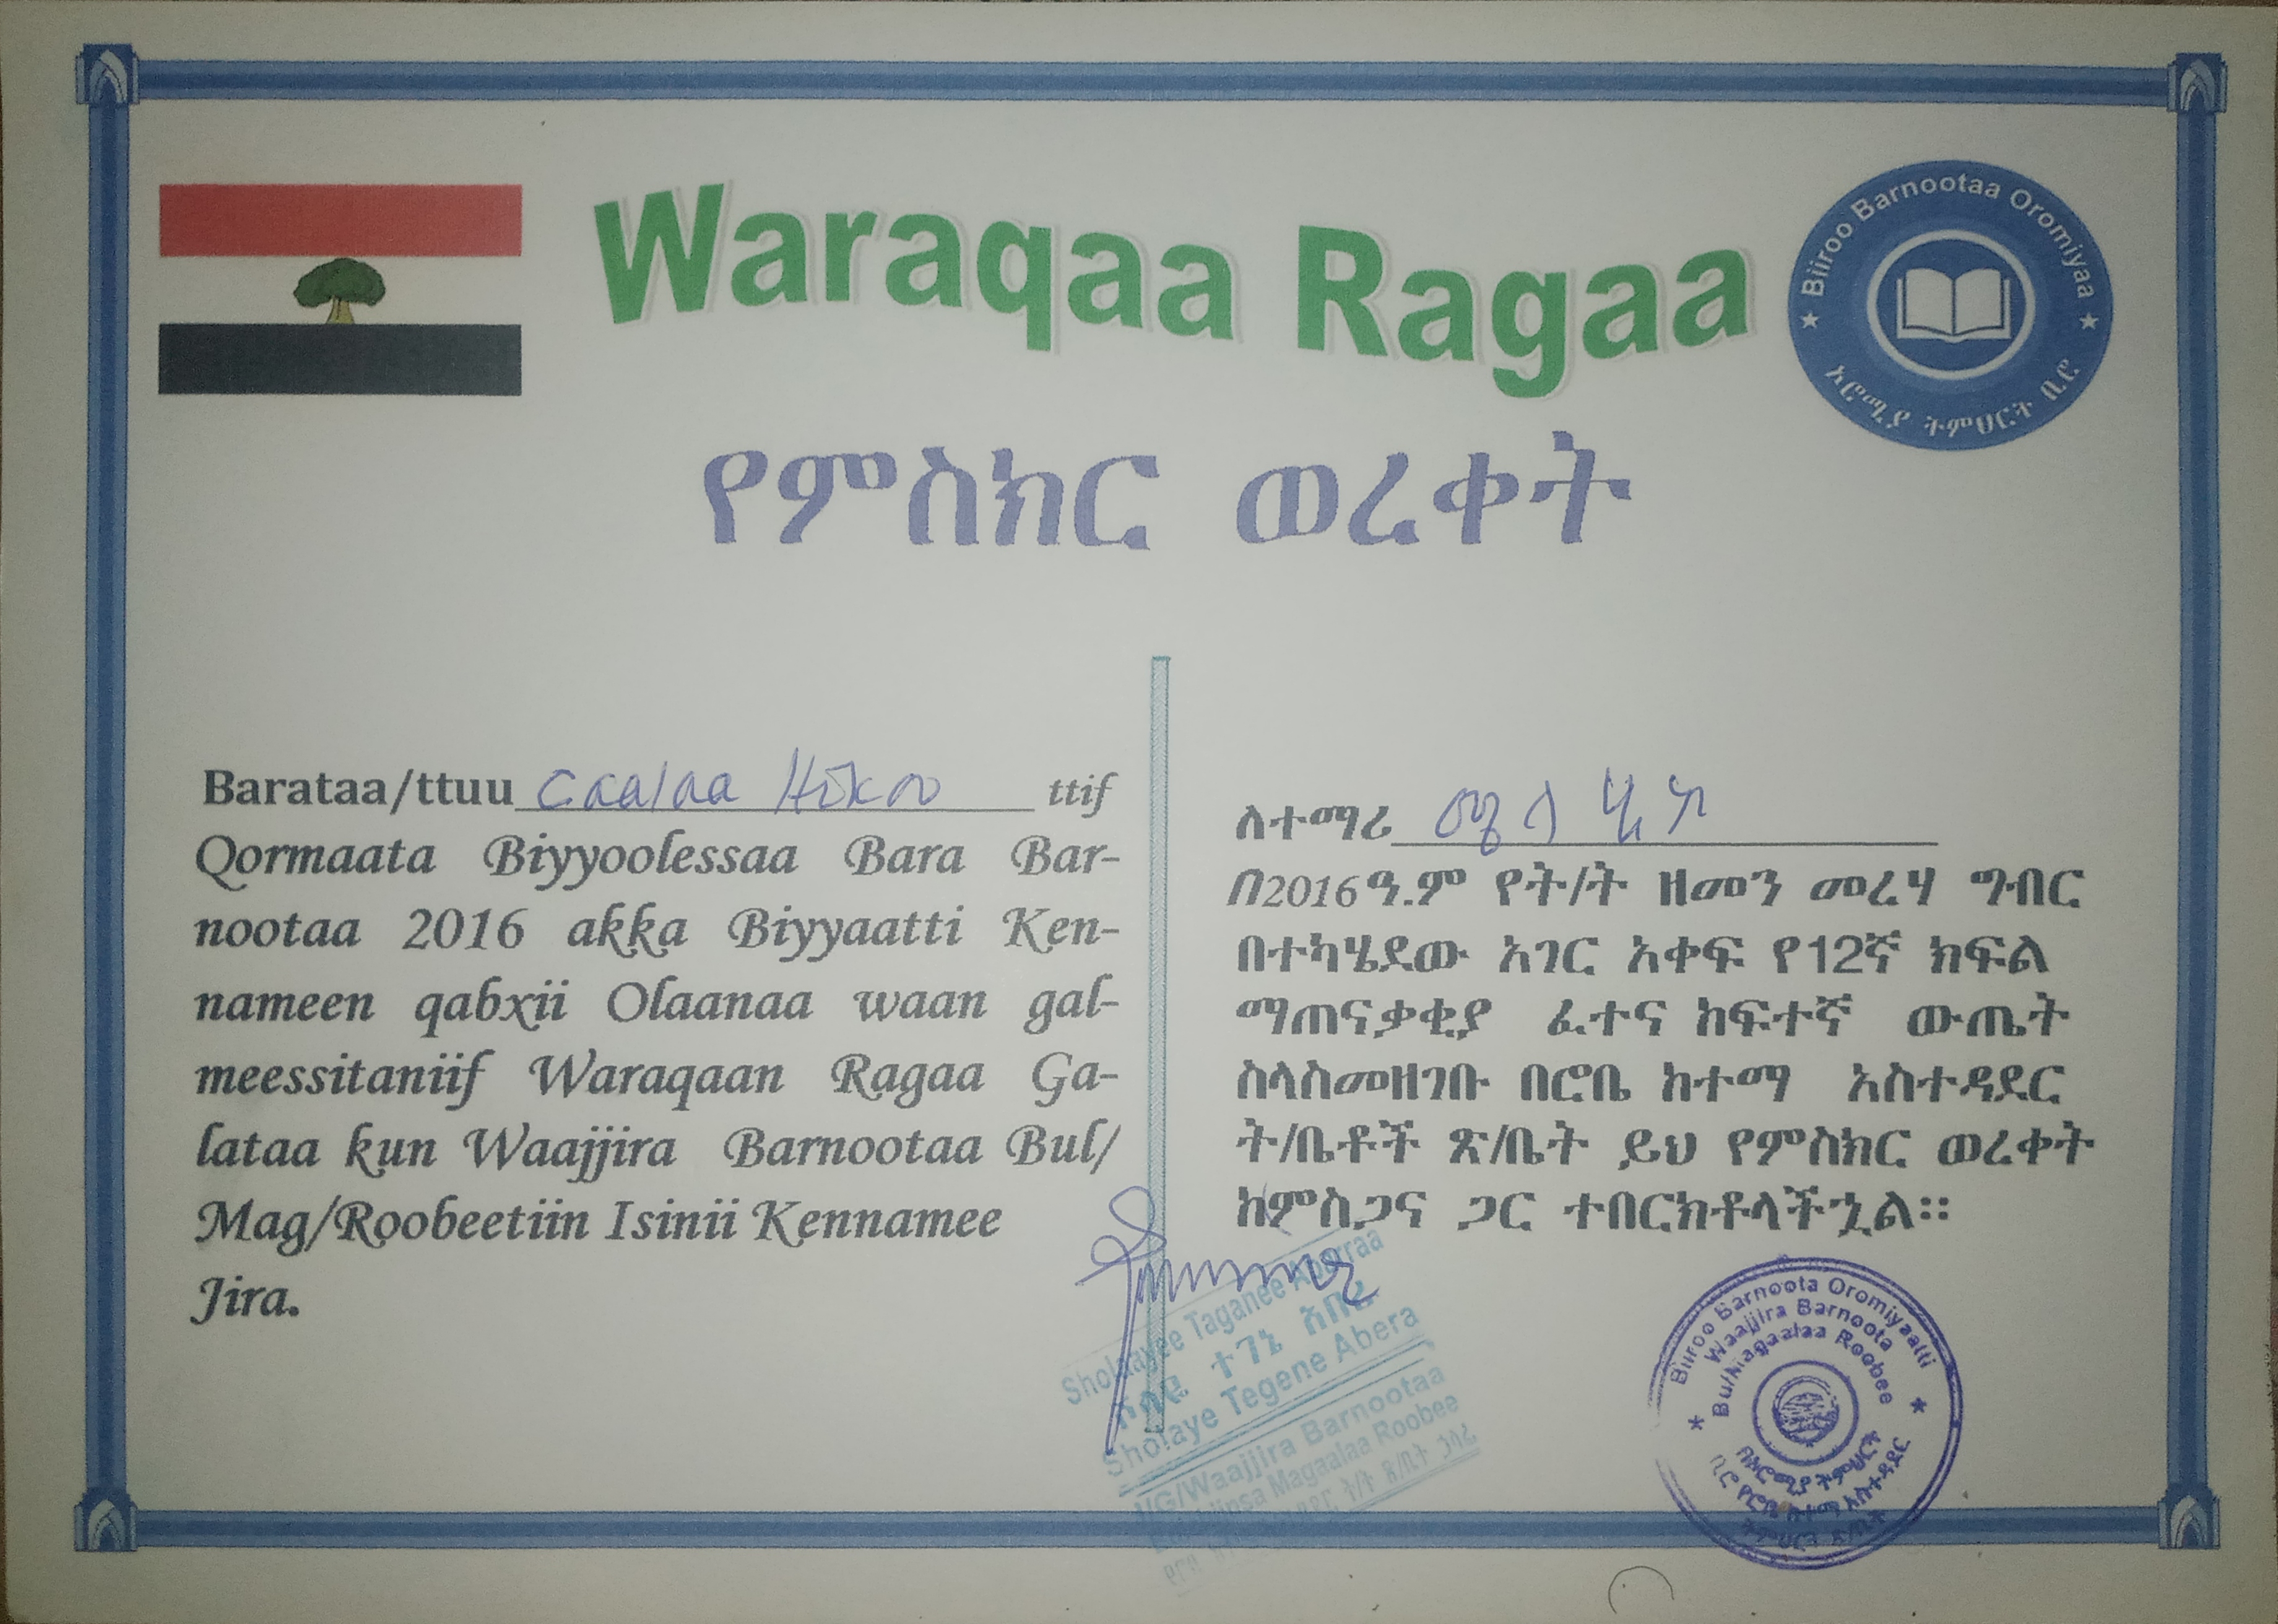 Waraqaa Ragaa
Biiroo Barnootaa Oromiyaa
ኦሮሚያ ትምህርት ቢሮ
የምስክር ወረቀት
Barataa/ttuu Caalaa ttif
Qormaata Biyyoolessaa Bara Bar-
nootaa 2016 akka Biyyaatti Ken-
nameen qabxii Olaanaa waan gal-
meessitaniif Waraqaan Ragaa Ga-
lataa kun Waajjira Barnootaa Bul/
Mag/Roobeetiin Isinii Kennamee
Jira.
ለተማሪ
በ2016ዓ.ም የት/ት ዘመን መረሃ ግብር
በተካሄደው አገር አቀፍ የ12ኛ ክፍል
ማጠናቃቂያ ፈተና ከፍተኛ ውጤት
ስላስመዘገቡ በሮቤ ከተማ አስተዳደር
ት/ቤቶች ጽ/ቤት ይህ የምስክር ወረቀት
ከምስጋና ጋር ተበርክቶላችኋል፡፡
Taganee
ተገኔ አበራ
Sholaye Tegene Abera
Waajjira Barnootaa
Magaalaa Roobee
Biiroo Barnoota Oromiyaatti
Waajjira Barnoota
Bu/Magaalaa Roobee
በኦሮሚያ ትምህርት
ቢሮ የሮቤ ከተማ አስተዳደር